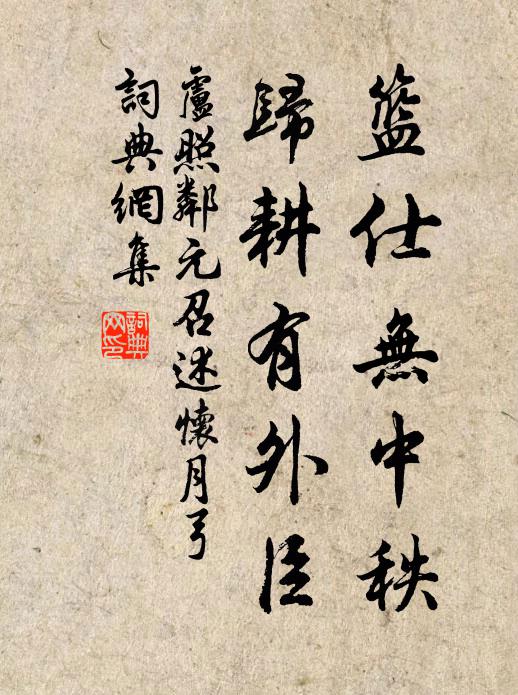 籃仕無中秩
歸耕有外臣
盧照鄰元召述懷月弓
詞典網集
詞典网印